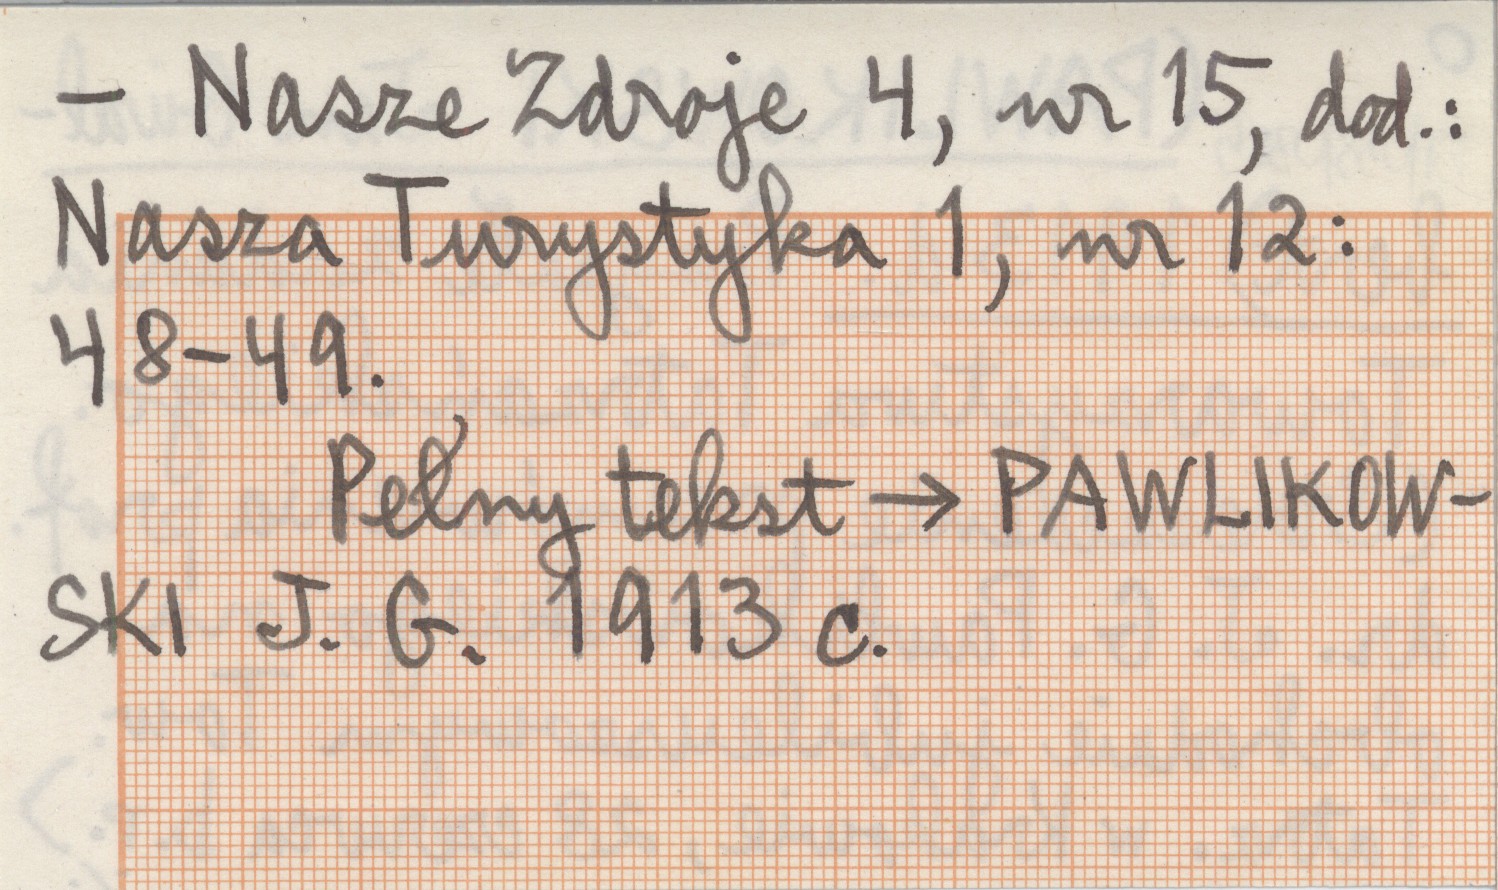 – Nasze Zdroje 4, nr 15, dod.:
Nasza Turystyka 1, nr 12:
48–49.
Pełny tekst → PAWLIKOW-
SKI J. G. 1913 c.